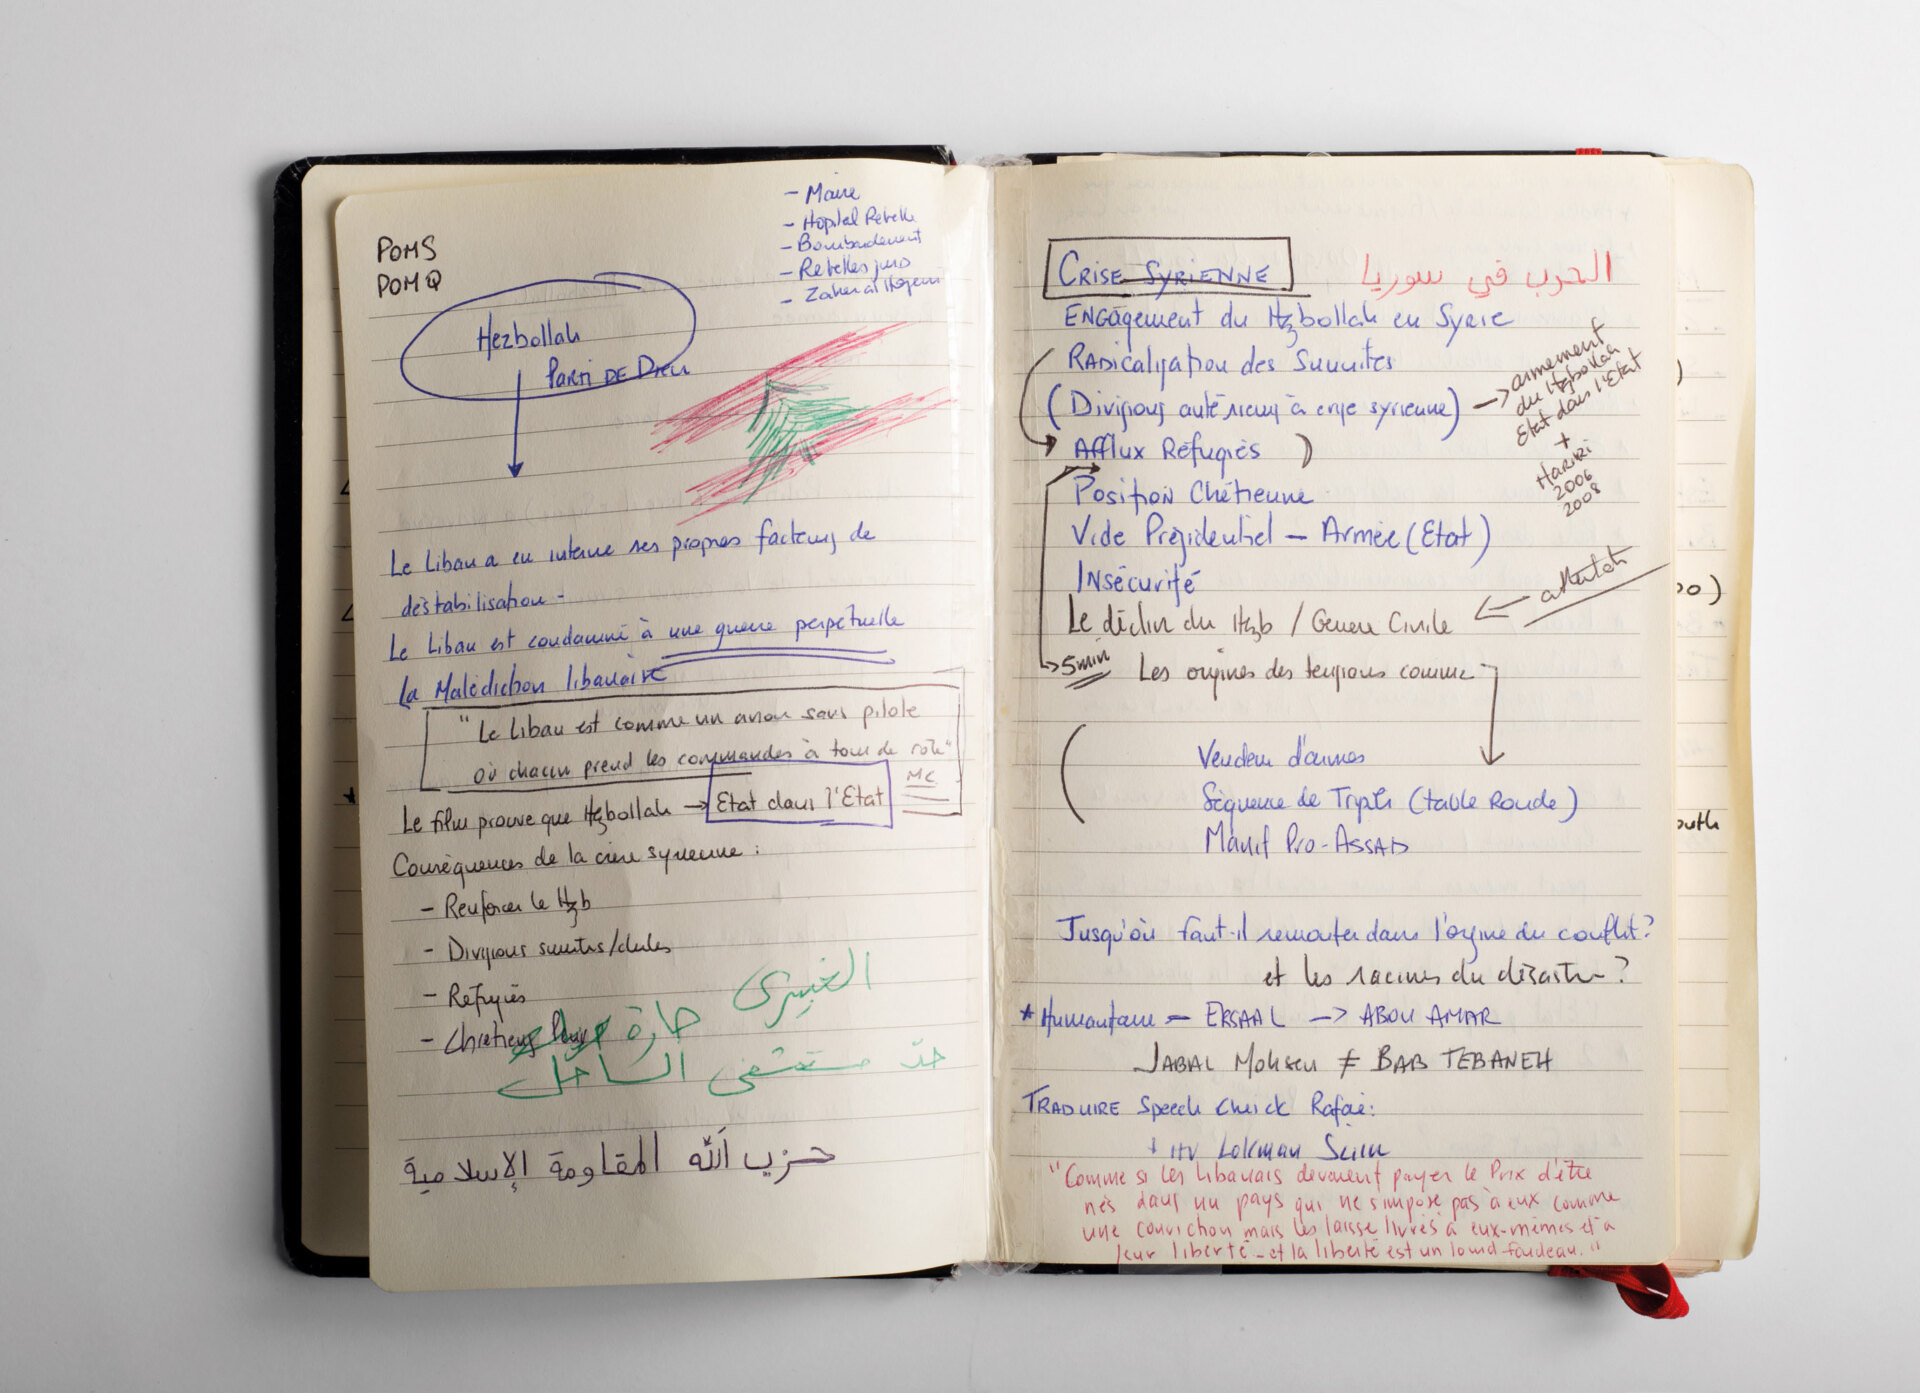 POMS
POMQ
- Maire
- Hopital Rebelle
- Bombardement
- Rebelles
- Zaher al
Hezbollah
PARTI DE DIEU
Le Liban a en interne ses propres facteurs de
déstabilisation -
Le Liban est condamné à une guerre perpétuelle
La Malédiction libanaise
"Le Liban est comme un avion sans pilote
où chacun prend les commandes à tour de rôle"
MC
Le film prouve que Hzbollah → Etat dans l'Etat
Conséquences de la crise syrienne :
- Renforcer le Hzb
- Divisions sunnites/chiites
- Réfugiés
- Chrétiens
الغبيري
حارة
حدّ مستشفى الساحل
حزب الله المقاومة الإسلامية
CRISE SYRIENNE
الحرب في سوريا
ENGAgement du Hzbollah en Syrie
RADicalisation des Sunnites
(Divisions antérieurs à crise syrienne) → armement
du Hzbollah
Etat dans l'Etat
+
Hariri
2006
2008
Afflux Réfugiés )
Position Chrétienne
Vide Présidentiel - Armée (Etat)
INsécurité
Le déclin du Hzb / Guerre Civile ← attentat
5min Les origines des tensions comme
Vendeur d'armes
Séquence de Tripoli (table Ronde)
Manif Pro-ASSAD
Jusqu'où faut-il remonter dans l'origine du conflit?
et les racines du désastre ?
* Humanitaire - ERSAAL → ABOU AMAR
JABAL Mohsen ≠ BAB TEBANEH
TRADUIRE Speech Cheick Rafaï:
+ ITV Lokman Slim
"Comme si les Libanais devaient payer le Prix d'être
nés dans un pays qui ne s'impose pas à eux comme
une conviction mais les laisse livrés à eux-mêmes et à
leur liberté - et la liberté est un lourd fardeau."